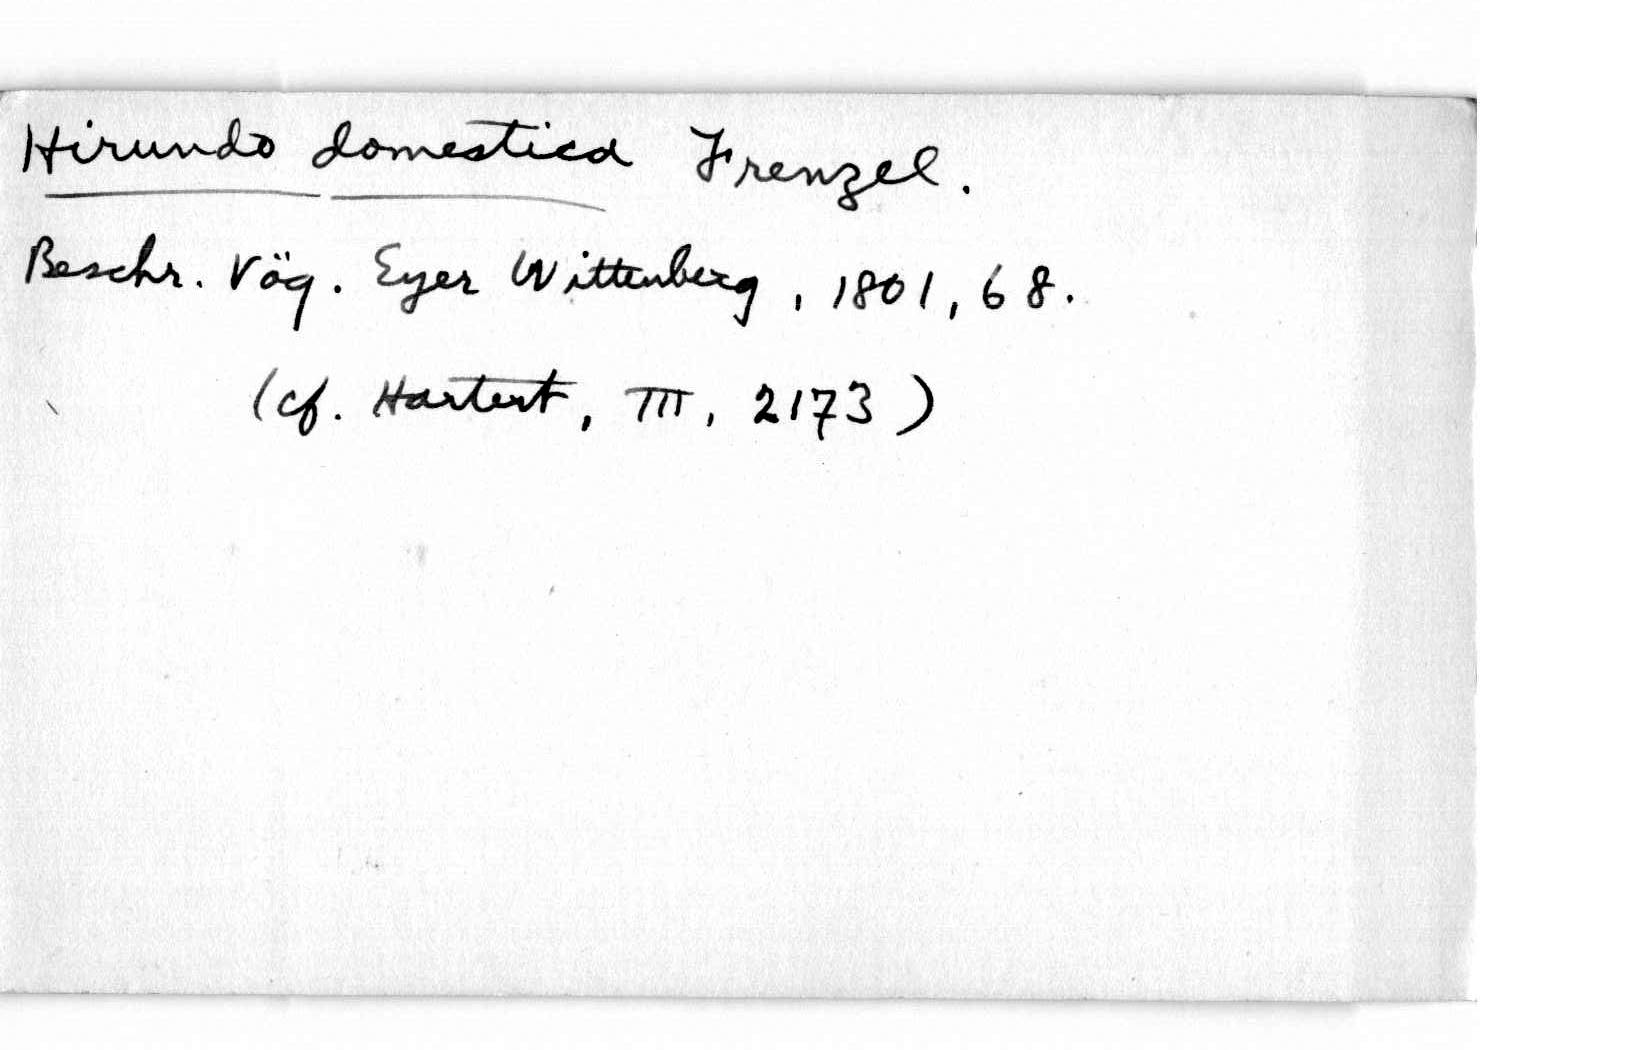 Hirundo domestica Frenzel.
Beschr. Vög. Eyer Wittenberg, 1801, 68.
(cf. Hartert, III, 2173)